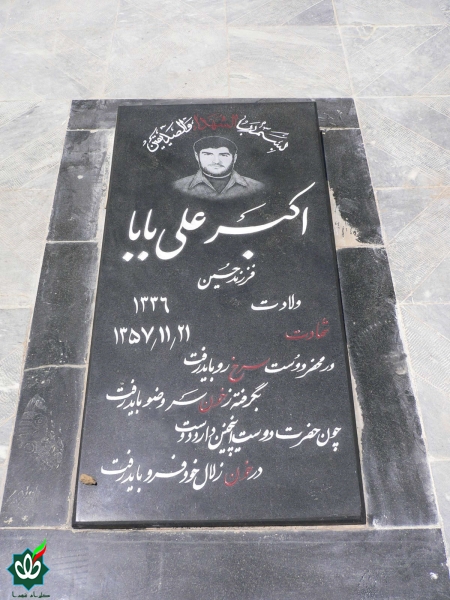 بسم رب الشهداء والصدیقین
اکبر علی بابا
فرزند حسین
ولادت ۱۳۳۶
شهادت ۱۳۵۷/۱۱/۲۱
در محضر دوست سرخ رو باید رفت
بگرفته ز خون سر وضو باید رفت
چون حضرت دوست اینچنین دارد دوست
در خون زلال خود فرو باید رفت